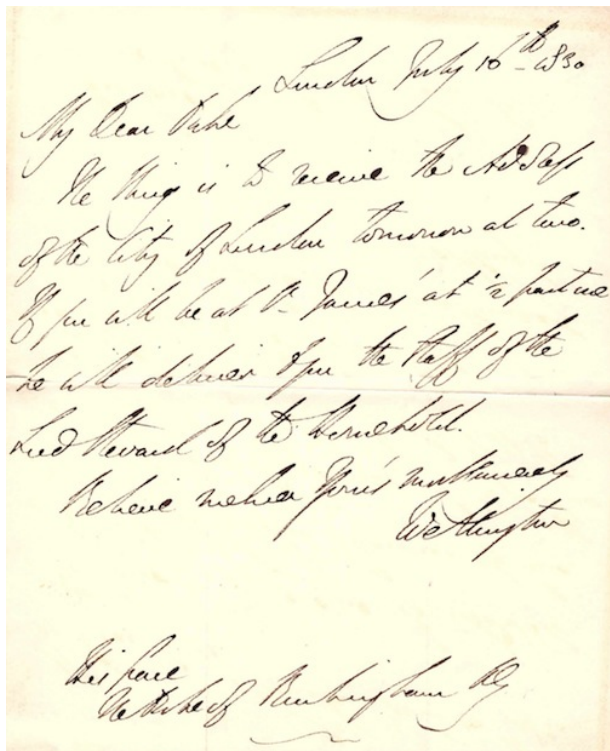 London July 16th 1830
My Dear Duke
The King is to receive the Address
of the City of London tomorrow at two.
If you will be at St. James' at ½ past one
he will deliver to you the Staff of the
Lord Steward of the Household.
Believe me Ever Yours most sincerely
Wellington
His Grace
The Duke of Buckingham KG